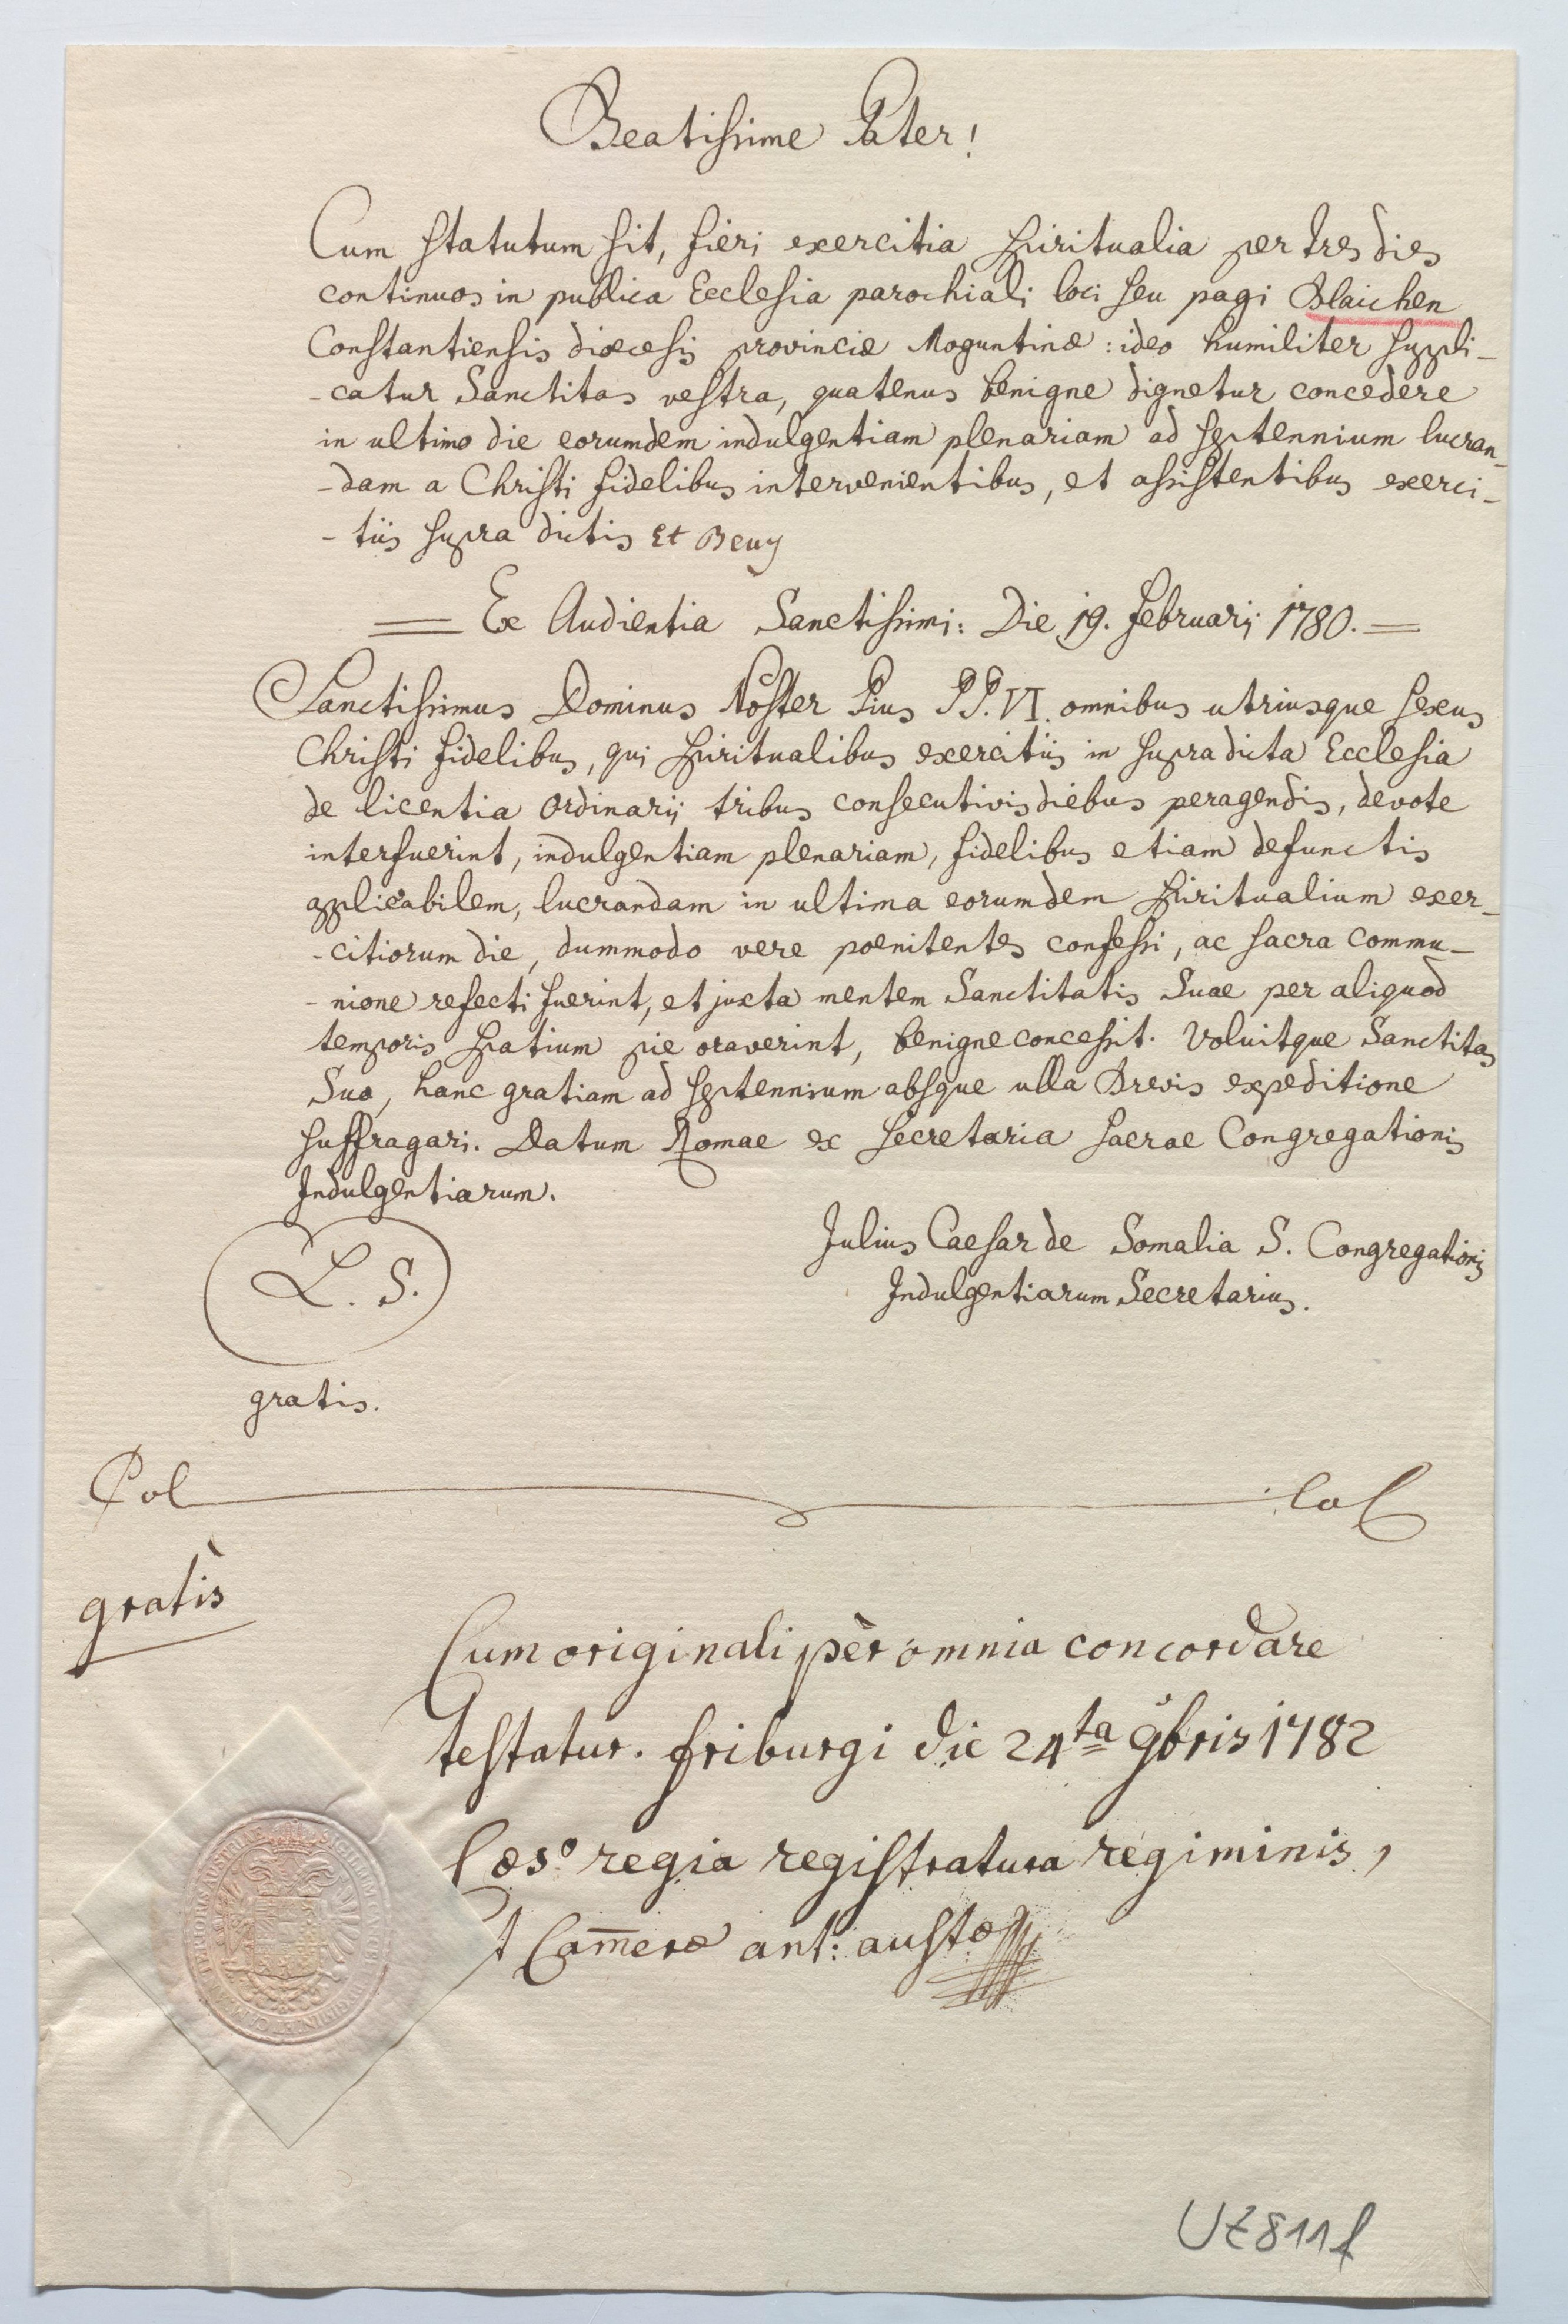 Beatissime Pater!
Cum statutum sit, fieri exercitia spiritualia per tres dies
continuos in publica Ecclesia parochiali loci seu pagi Blaichen
Constantiensis diœcesis provinciæ Moguntinæ: ideo humiliter suppli-
-catur Sanctitas vestra, quatenus benigne dignetur concedere
in ultimo die eorumdem indulgentiam plenariam ad septennium lucran-
-dam a Christi fidelibus intervenientibus, et assistentibus exerci-
-tiis supra dictis Et
= Ex Audientia Sanctissimi: Die 19. Februarij 1780. =
Sanctissimus Dominus Noster Pius PP. VI. omnibus utriusque sexus
Christi fidelibus, qui spiritualibus exercitiis in supra dicta Ecclesia
de licentia Ordinarij tribus consecutivis diebus peragendis, devote
interfuerint, indulgentiam plenariam, fidelibus etiam defunctis
applicabilem, lucrandam in ultima eorumdem spiritualium exer-
-citiorum die, dummodo vere poenitentes confessi, ac sacra commu-
-nione refecti fuerint, et juxta mentem Sanctitatis Suae per aliquod
temporis spatium pie oraverint, benigne concessit. Voluitque Sanctitas
Sua, hanc gratiam ad septennium absque ulla Brevis expeditione
suffragari. Datum Romae ex Secretaria Sacrae Congregationis
Indulgentiarum.
Julius Caesar de Somalia S. Congregationis
Indulgentiarum Secretarius.
L. S.
gratis.
Col Col
gratis
Cum originali per omnia concordare
testatur. friburgi die 24ta 9bris 1782
Cæso regia registratura regiminis,
et Cam̄eræ ant: austæ
UZ811f